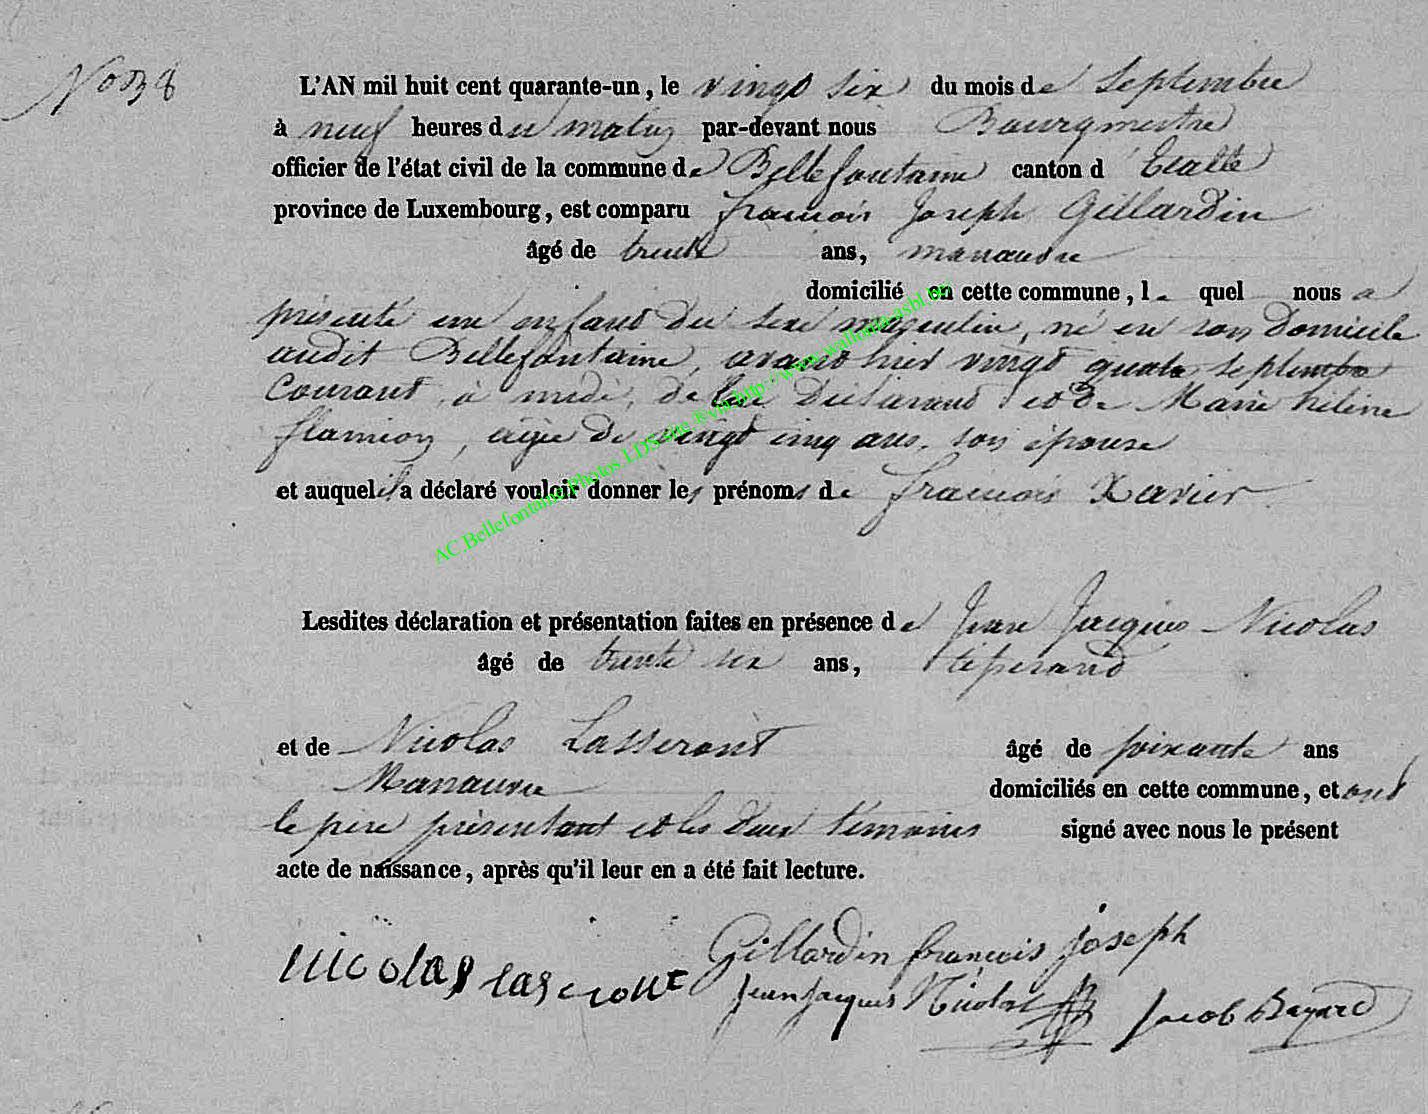 No 38
L'AN mil huit cent quarante-un, le vingt six du mois de septembre
à neuf heures du matin par-devant nous Bourgmestre
officier de l'état civil de la commune de Bellefontaine canton d'Etalle
province de Luxembourg, est comparu francois Joseph Gillardin
âgé de trente ans, manœuvre
domicilié en cette commune, le quel nous a
présenté un enfant du sexe masculin, né en son Domicile
audit Bellefontaine, avant hier vingt quatre septembre
Courant, à midi, de lui Déclarant et de Marie helene
flamion, agée de vingt cinq ans, son épouse
et auquel il a déclaré vouloir donner les prénoms de francois Xavier
Lesdites déclaration et présentation faites en présence de Jean Jacques Nicolas
âgé de trente six ans, tisserand
et de Nicolas Lasseront âgé de soixante ans
Manœuvre domiciliés en cette commune, et ont
le père présentant et les deux témoins signé avec nous le présent
acte de naissance, après qu'il leur en a été fait lecture.
Gillardin françois joseph
nicolas
Jean Jacques Nicolas Jacob Bayard
AC Bellefontaine Photos LDS site ®via http://www.wallonia-asbl.be